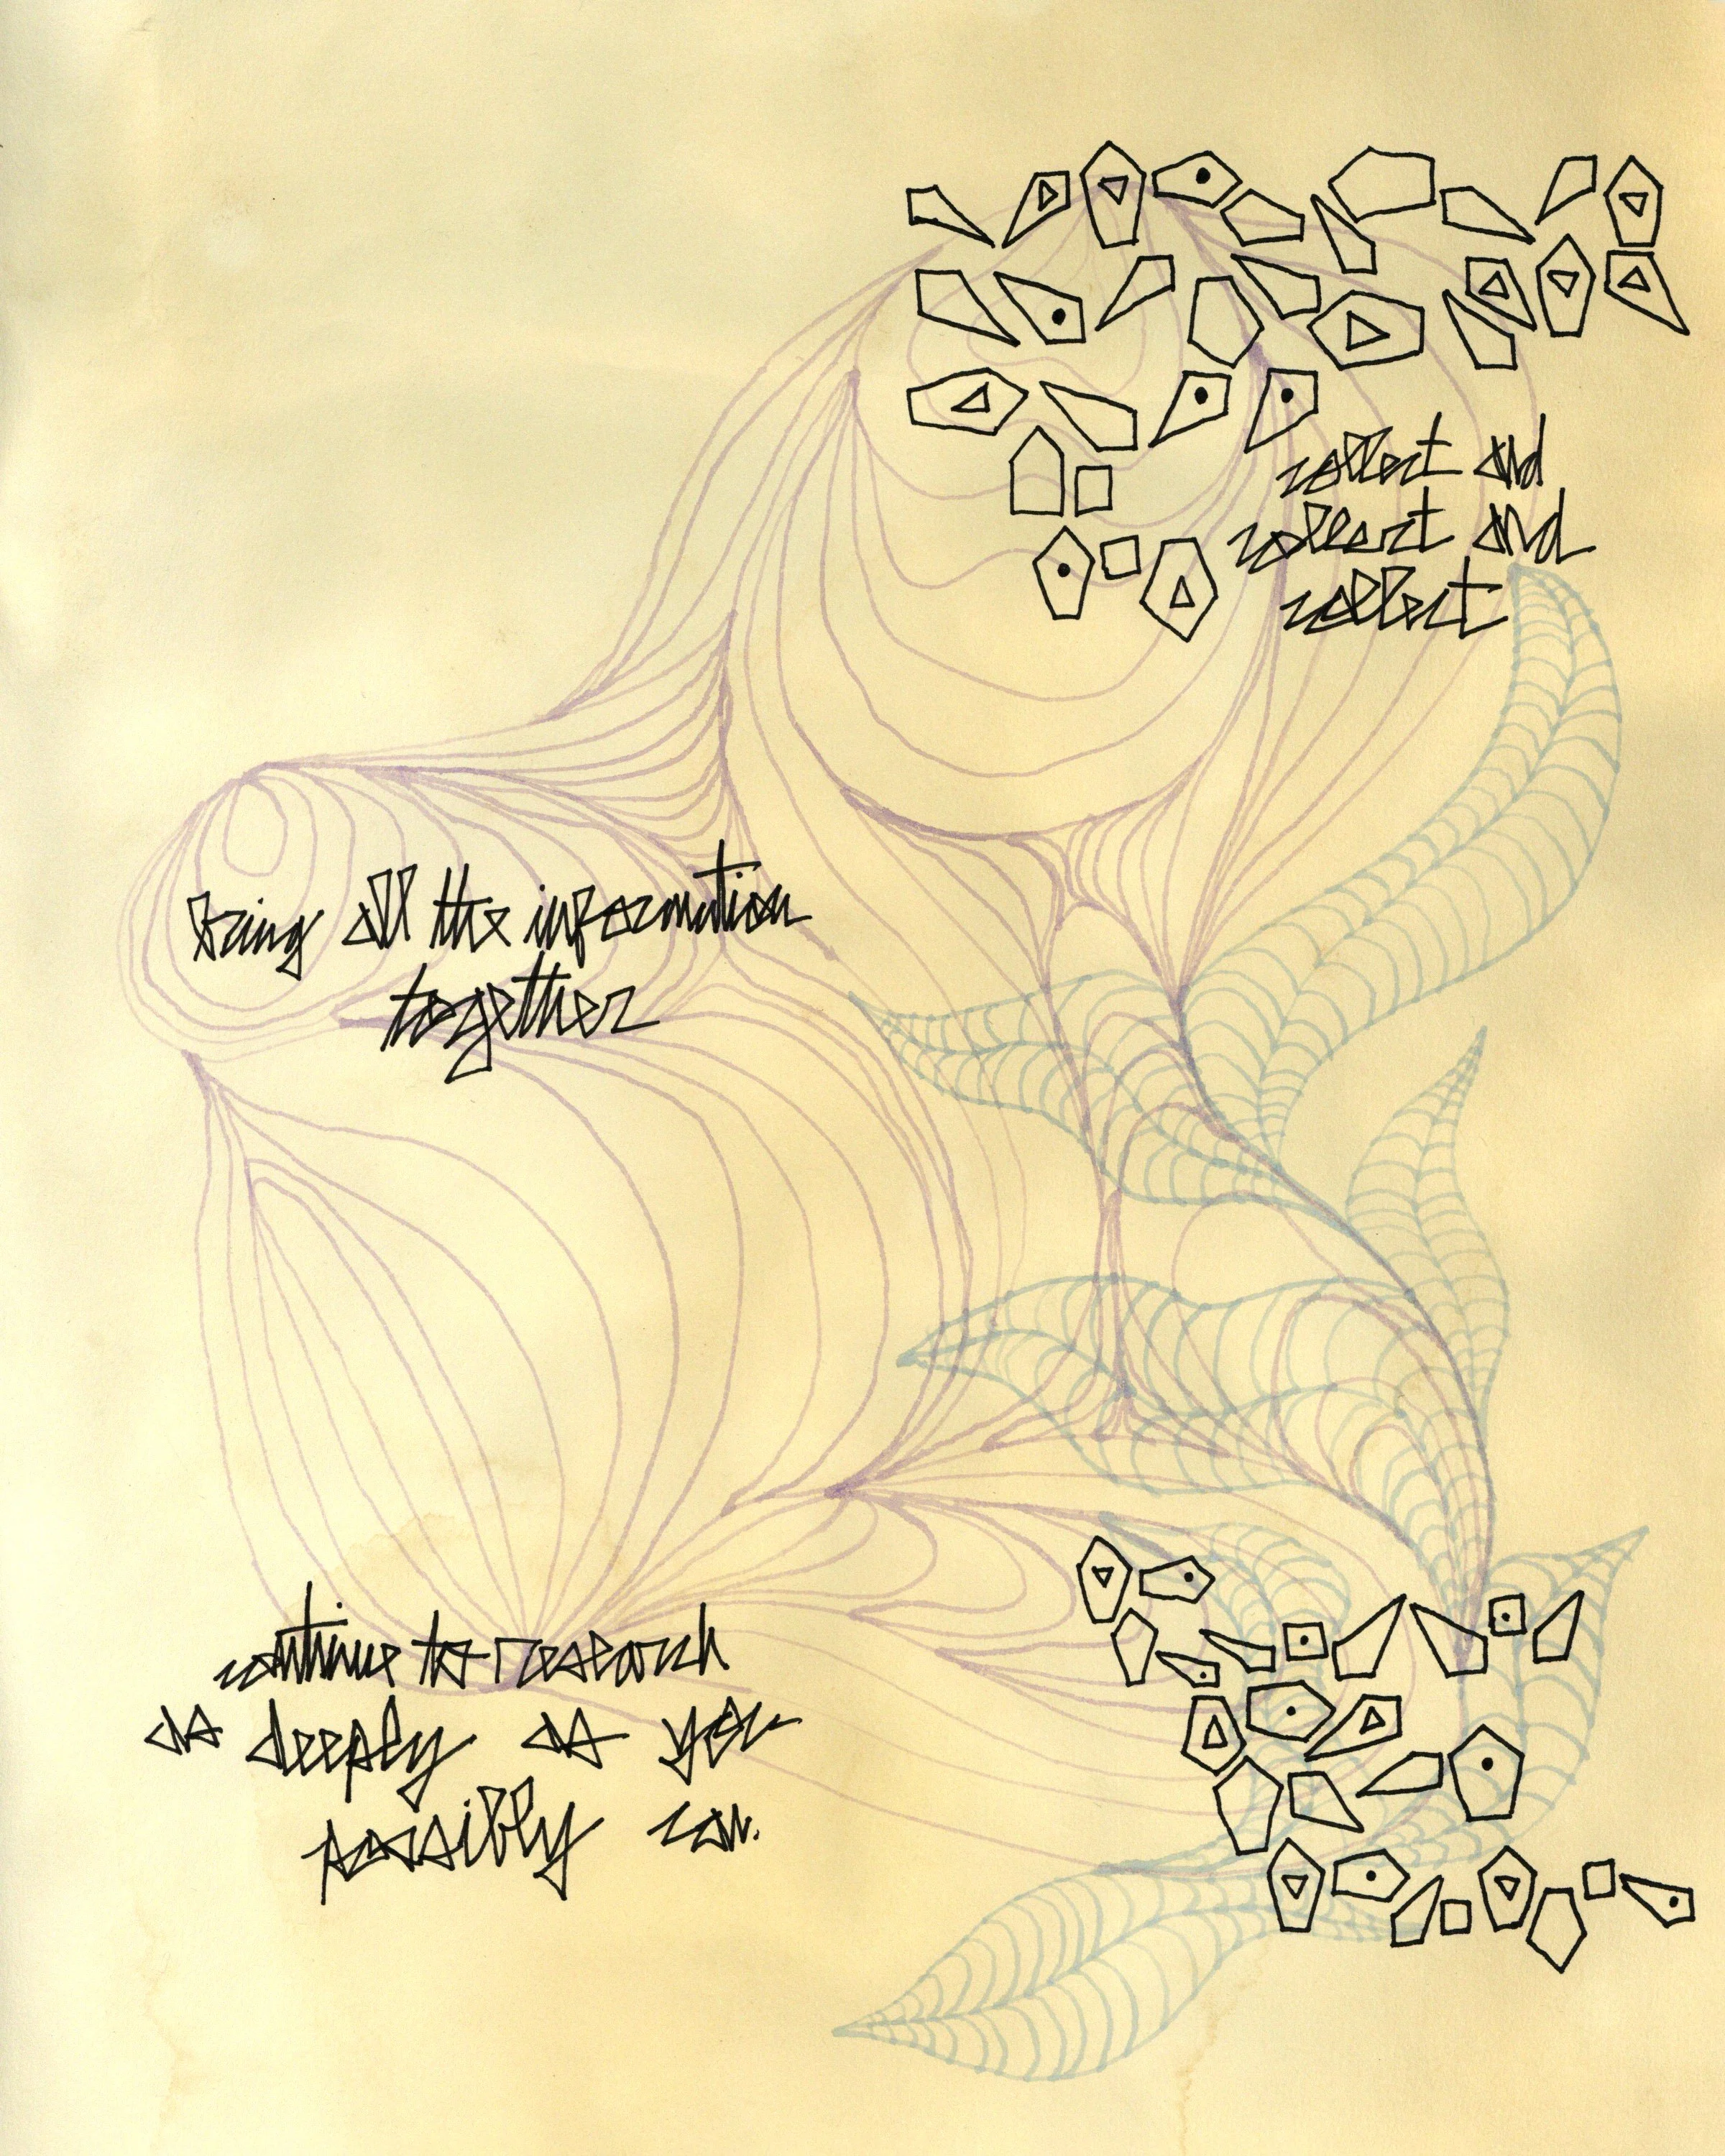 collect and
collect and
collect
bring all the information
together
continue to research
as deeply as you
possibly can.